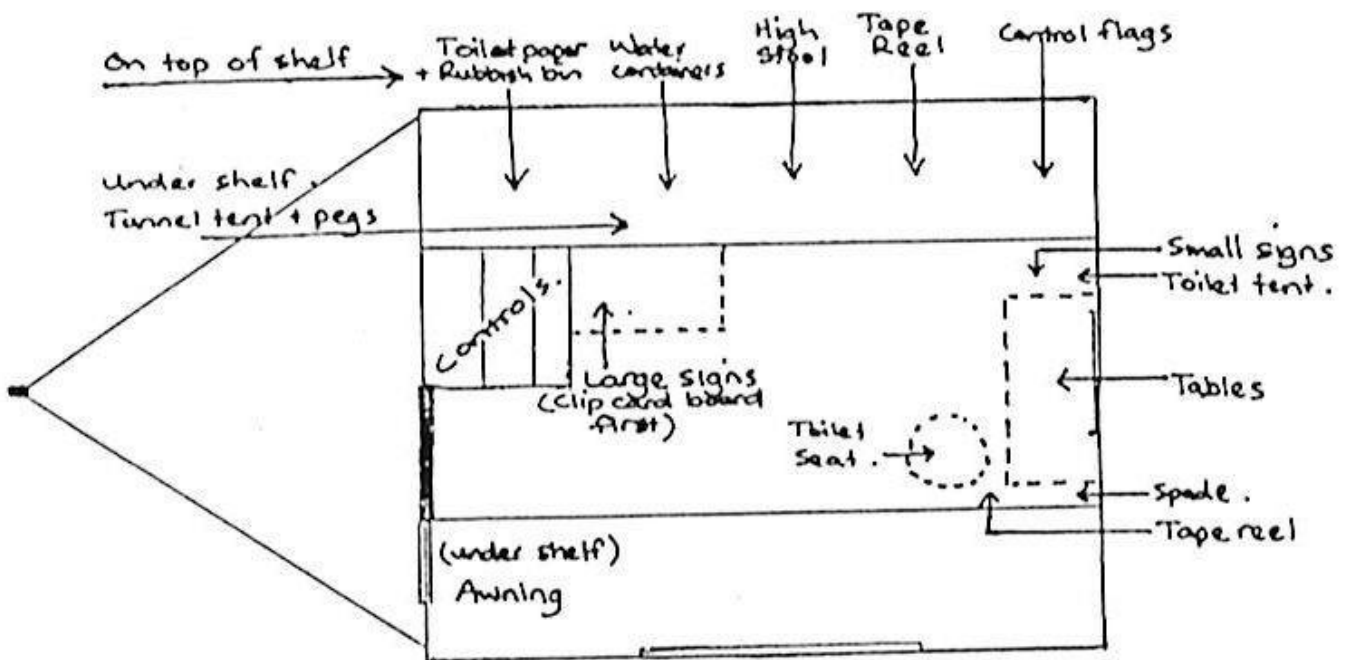 On top of shelf
Toilet paper
+ Rubbish bin
Water
containers
High
Stool
Tape
Reel
Control flags
Under shelf.
Tunnel tent + pegs
Small signs
Toilet tent.
Controls.
Large signs
(Clip card board
first)
Tables
Toilet
Seat.
Spade.
Tape reel
(under shelf)
Awning